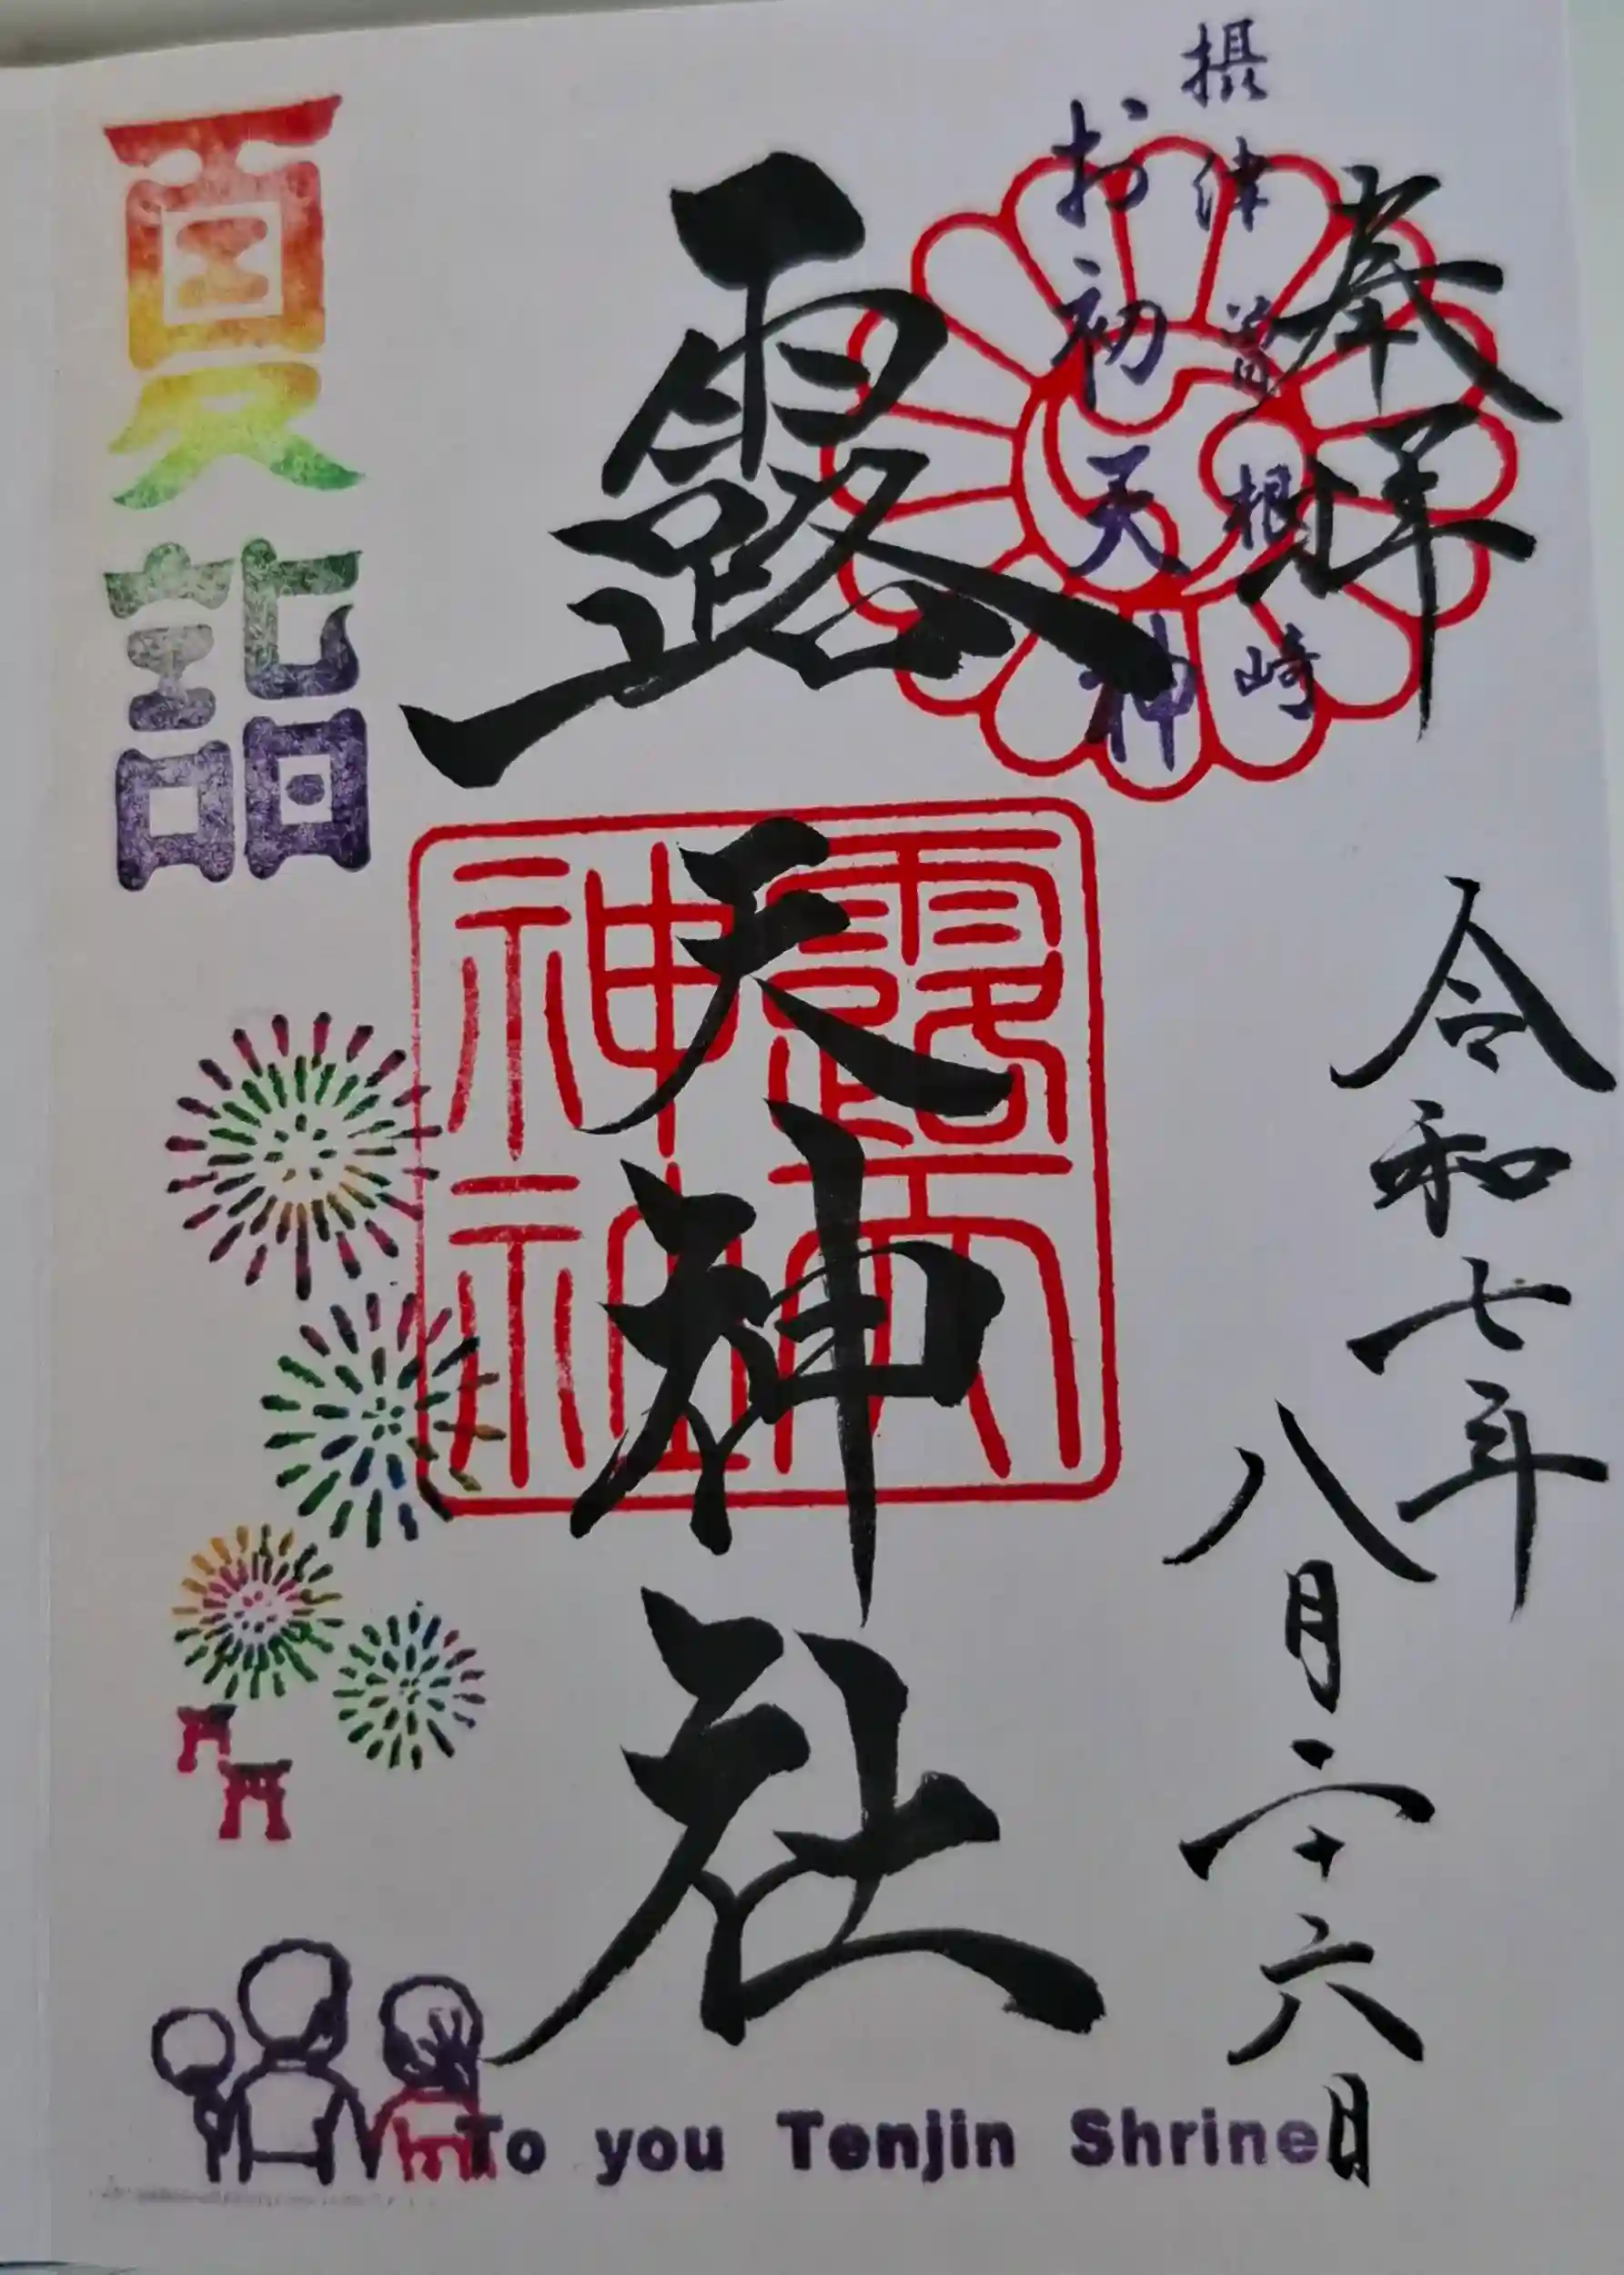 奉拝
摂津曽根崎
お初天神
露天神社
令和七年
八月二十六日
露天
神社
夏詣
To you Tenjin Shrine